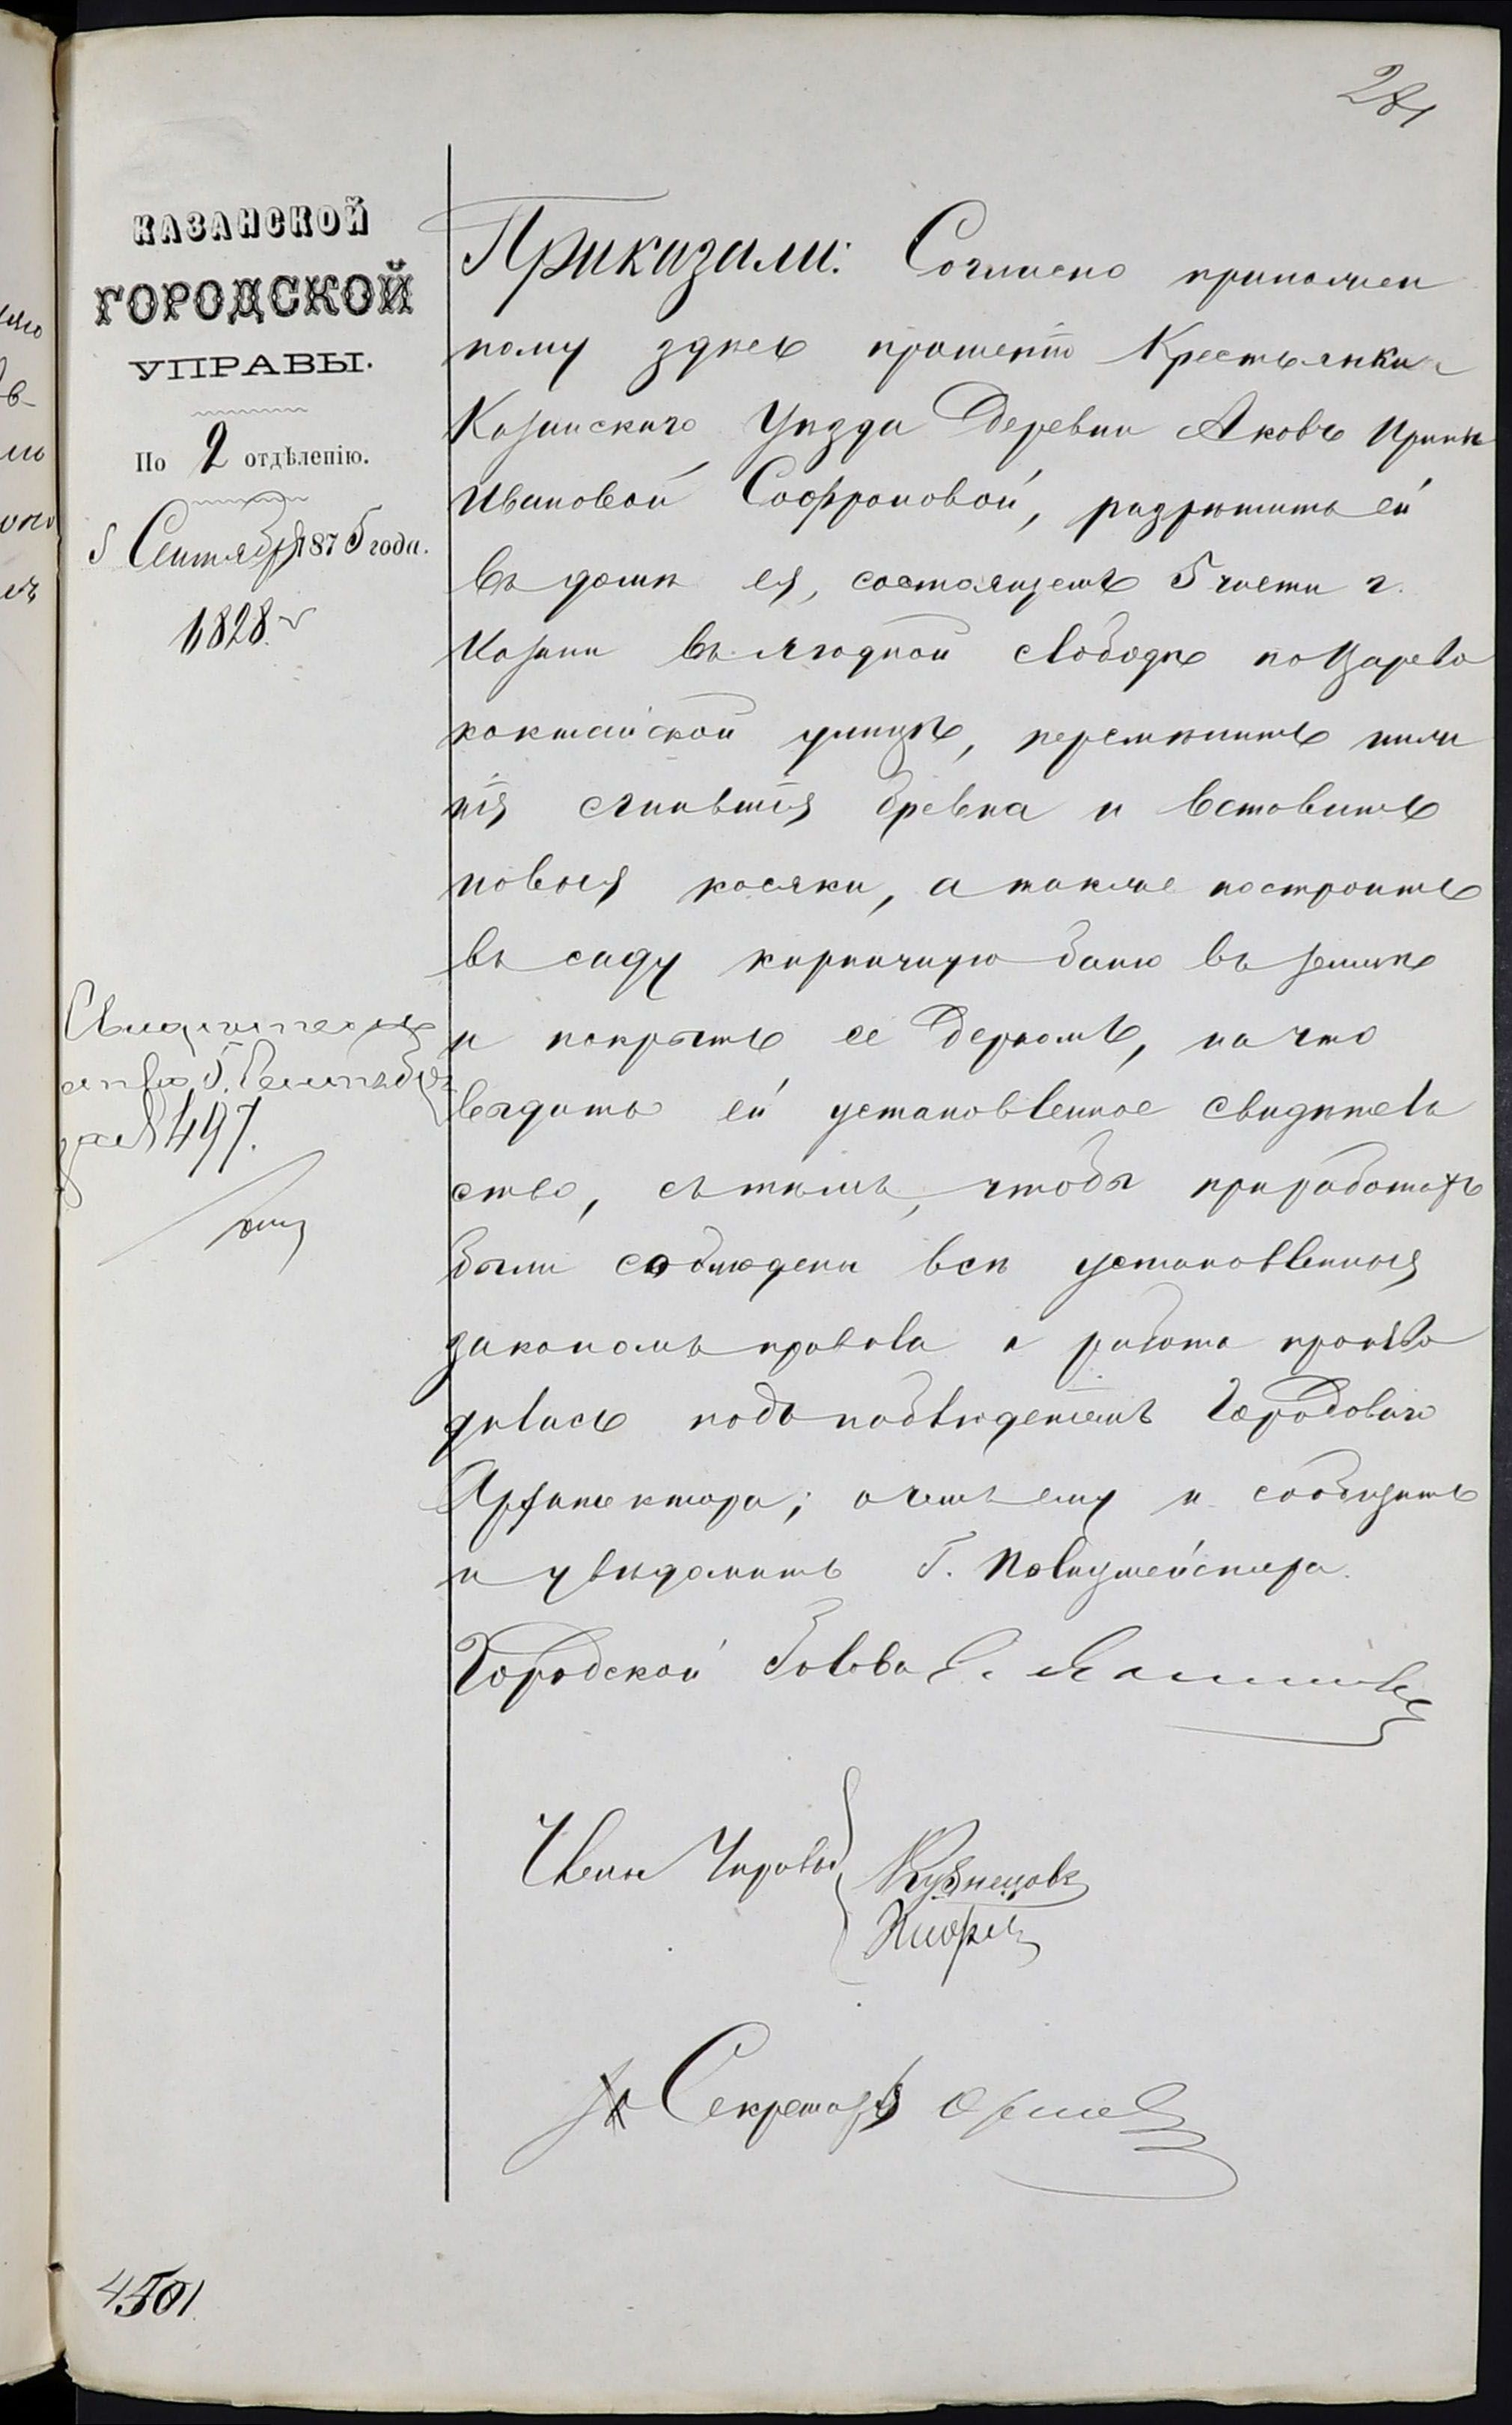 281
КАЗАНСКОЙ
ГОРОДСКОЙ
УПРАВЫ.
По 2 отдѣленію.
5 Сентября 1875 года.
1828.
Приказали: Согласно приложен
ному здѣсь прошенію Крестьянки
Казанскаго Уѣзда Деревни Аковъ Иринѣ
Ивановой Софроновой, разрѣшить ей
въ домѣ ея, состоящемъ 5 части г.
Казани въ Ягодной слободѣ по Царево
кокшайской улицѣ, перемѣнить ниж
нія сгнившія бревна и вставить
новыя косяки, а также построить
въ саду кирпичную баню въ землѣ
и покрыть ее дерномъ, на что
выдать ей установленное свидѣтель
ство, съ тѣмъ, чтобы при работахъ
были соблюдены всѣ установленныя
закономъ правила и работа произво
дилась подъ наблюденіемъ Городоваго
Архитектора; о чемъ ему и сообщить
и увѣдомить Г. Полицмейстера.
Городской Голова
Свидѣтель
ство 5. Сентября
за № 497.
Иванъ
Кузнецовъ
Секретарь
4501